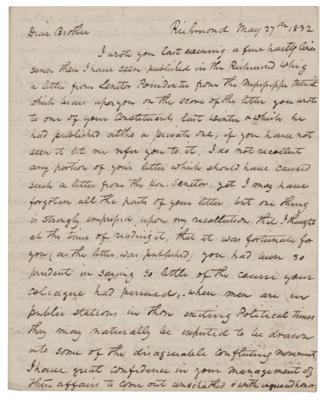 Dear Brother Richmond May 27th 1832
I wrote you last evening a few hasty lines
since then I have seen published in the Richmond Whig
a letter from Senator Poindexter from the Mississippi
which bears upon you on the score of the letter you wrote
to one of your Constituents last winter & which he
had published altho a private one, if you have not
seen it let me refer you to it, I do not recollect
any portion of your letter which should have caused
such a letter from the Hon. Senator, yet I may have
forgotten all the parts of your letter, but one thing
is strongly impressed upon my recollection that I thought
at the time of reading it, that it was fortunate for
you (as the letter was published) you had been so
prudent in saying so little of the course your
colleague had persued, when men are in
public stations in those exciting Political times
they may naturally be expected to be drawn
into some of the disagreeable conflicting movements
I have great confidence in your management of
these affairs to come out unscathed & with